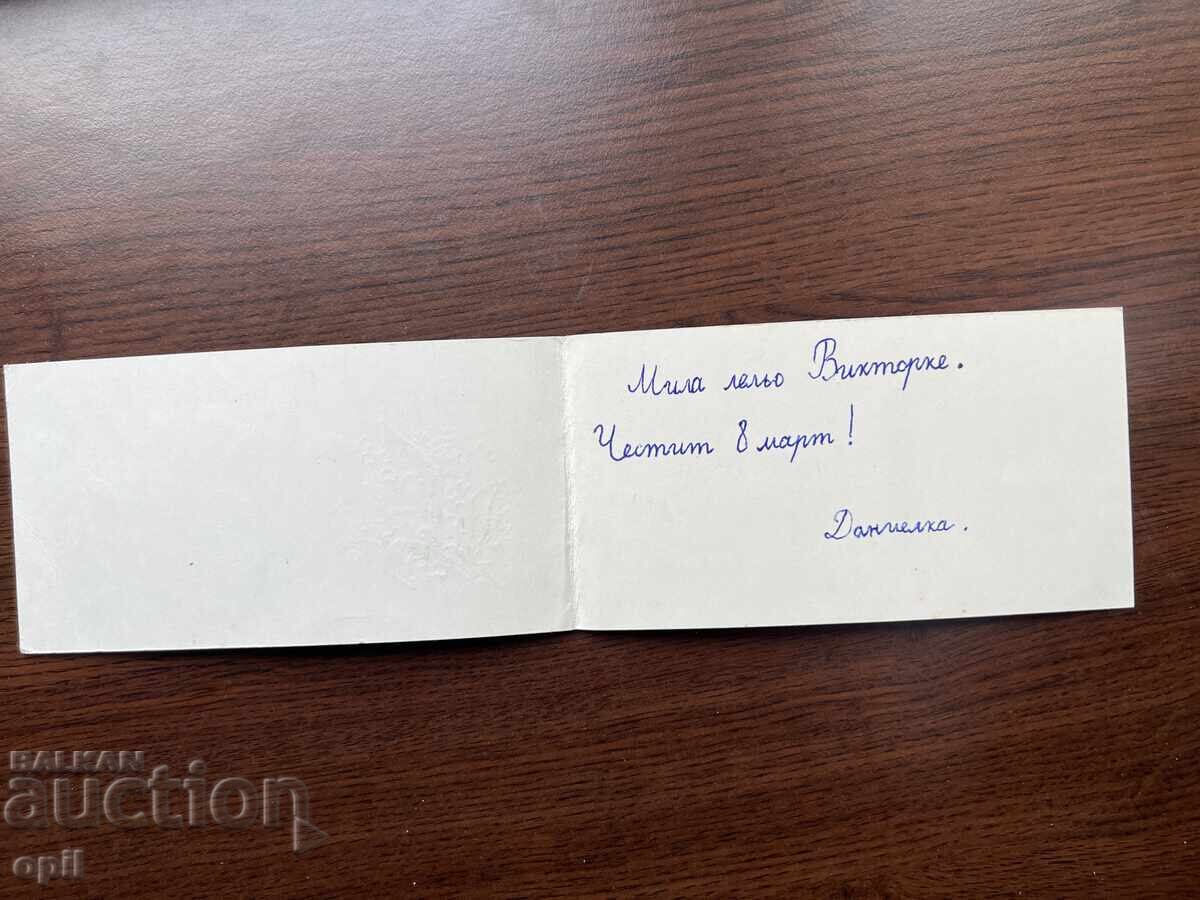 Мила лельо Викторке.
Честит 8 март!
Даниелка.
BALKAN
auction
opil